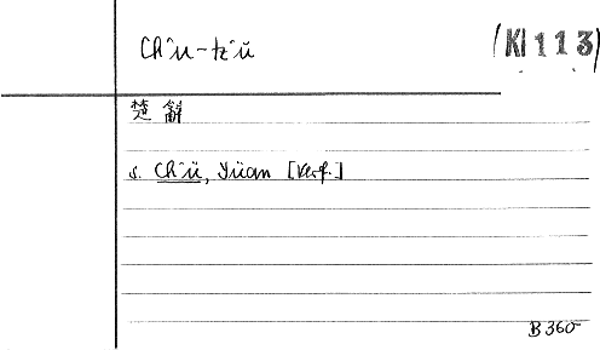 Ch'u-tz'ŭ
(KI 113)
楚辭
s. Ch'ü, Yüan [Verf.]
B 360